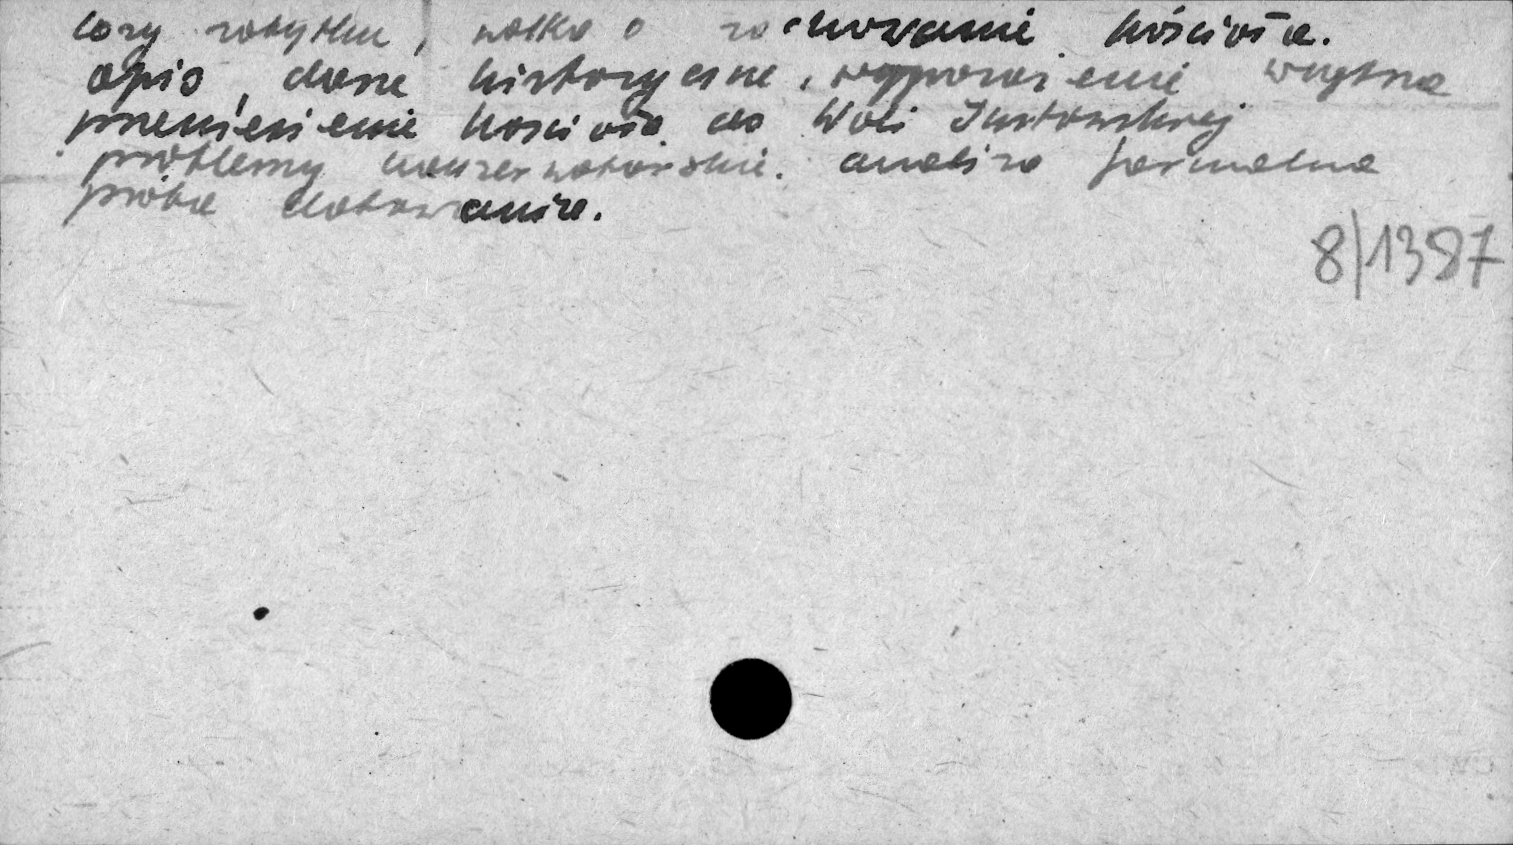 losy zabytku, walka o zachowanie kościoła.
opis, dane historyczne, wyposażenie wnętrza
przeniesienie kościoła do Woli Justowskiej
problemy konserwatorskie. analiza formalna
próba datowania.
8/1387